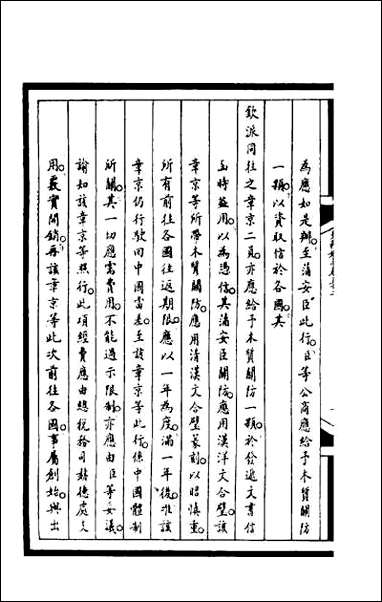 為應如是辦至蒲安臣此行臣等公商應給予木質關防
一顆以資取信於各國其
欽派同往之章京二員亦應給予木質關防一顆於發遞文書信
函時益用以為憑信其蒲安臣關防應用漢洋文合璧該
章京等所帶木質關防應用清漢文合璧篆刻以昭慎重
所有前往各國往返期限應以一年為度滿一年後准該
章京仍行駛回中國當差至該章京等此行係中國體制
所關其一切應需費用不能過示限制亦應由臣等妥議
諭知該章京等照行此項經費應由總稅務司赫德處支
用覈實開銷再該章京等此次前往各國事屬創始與出